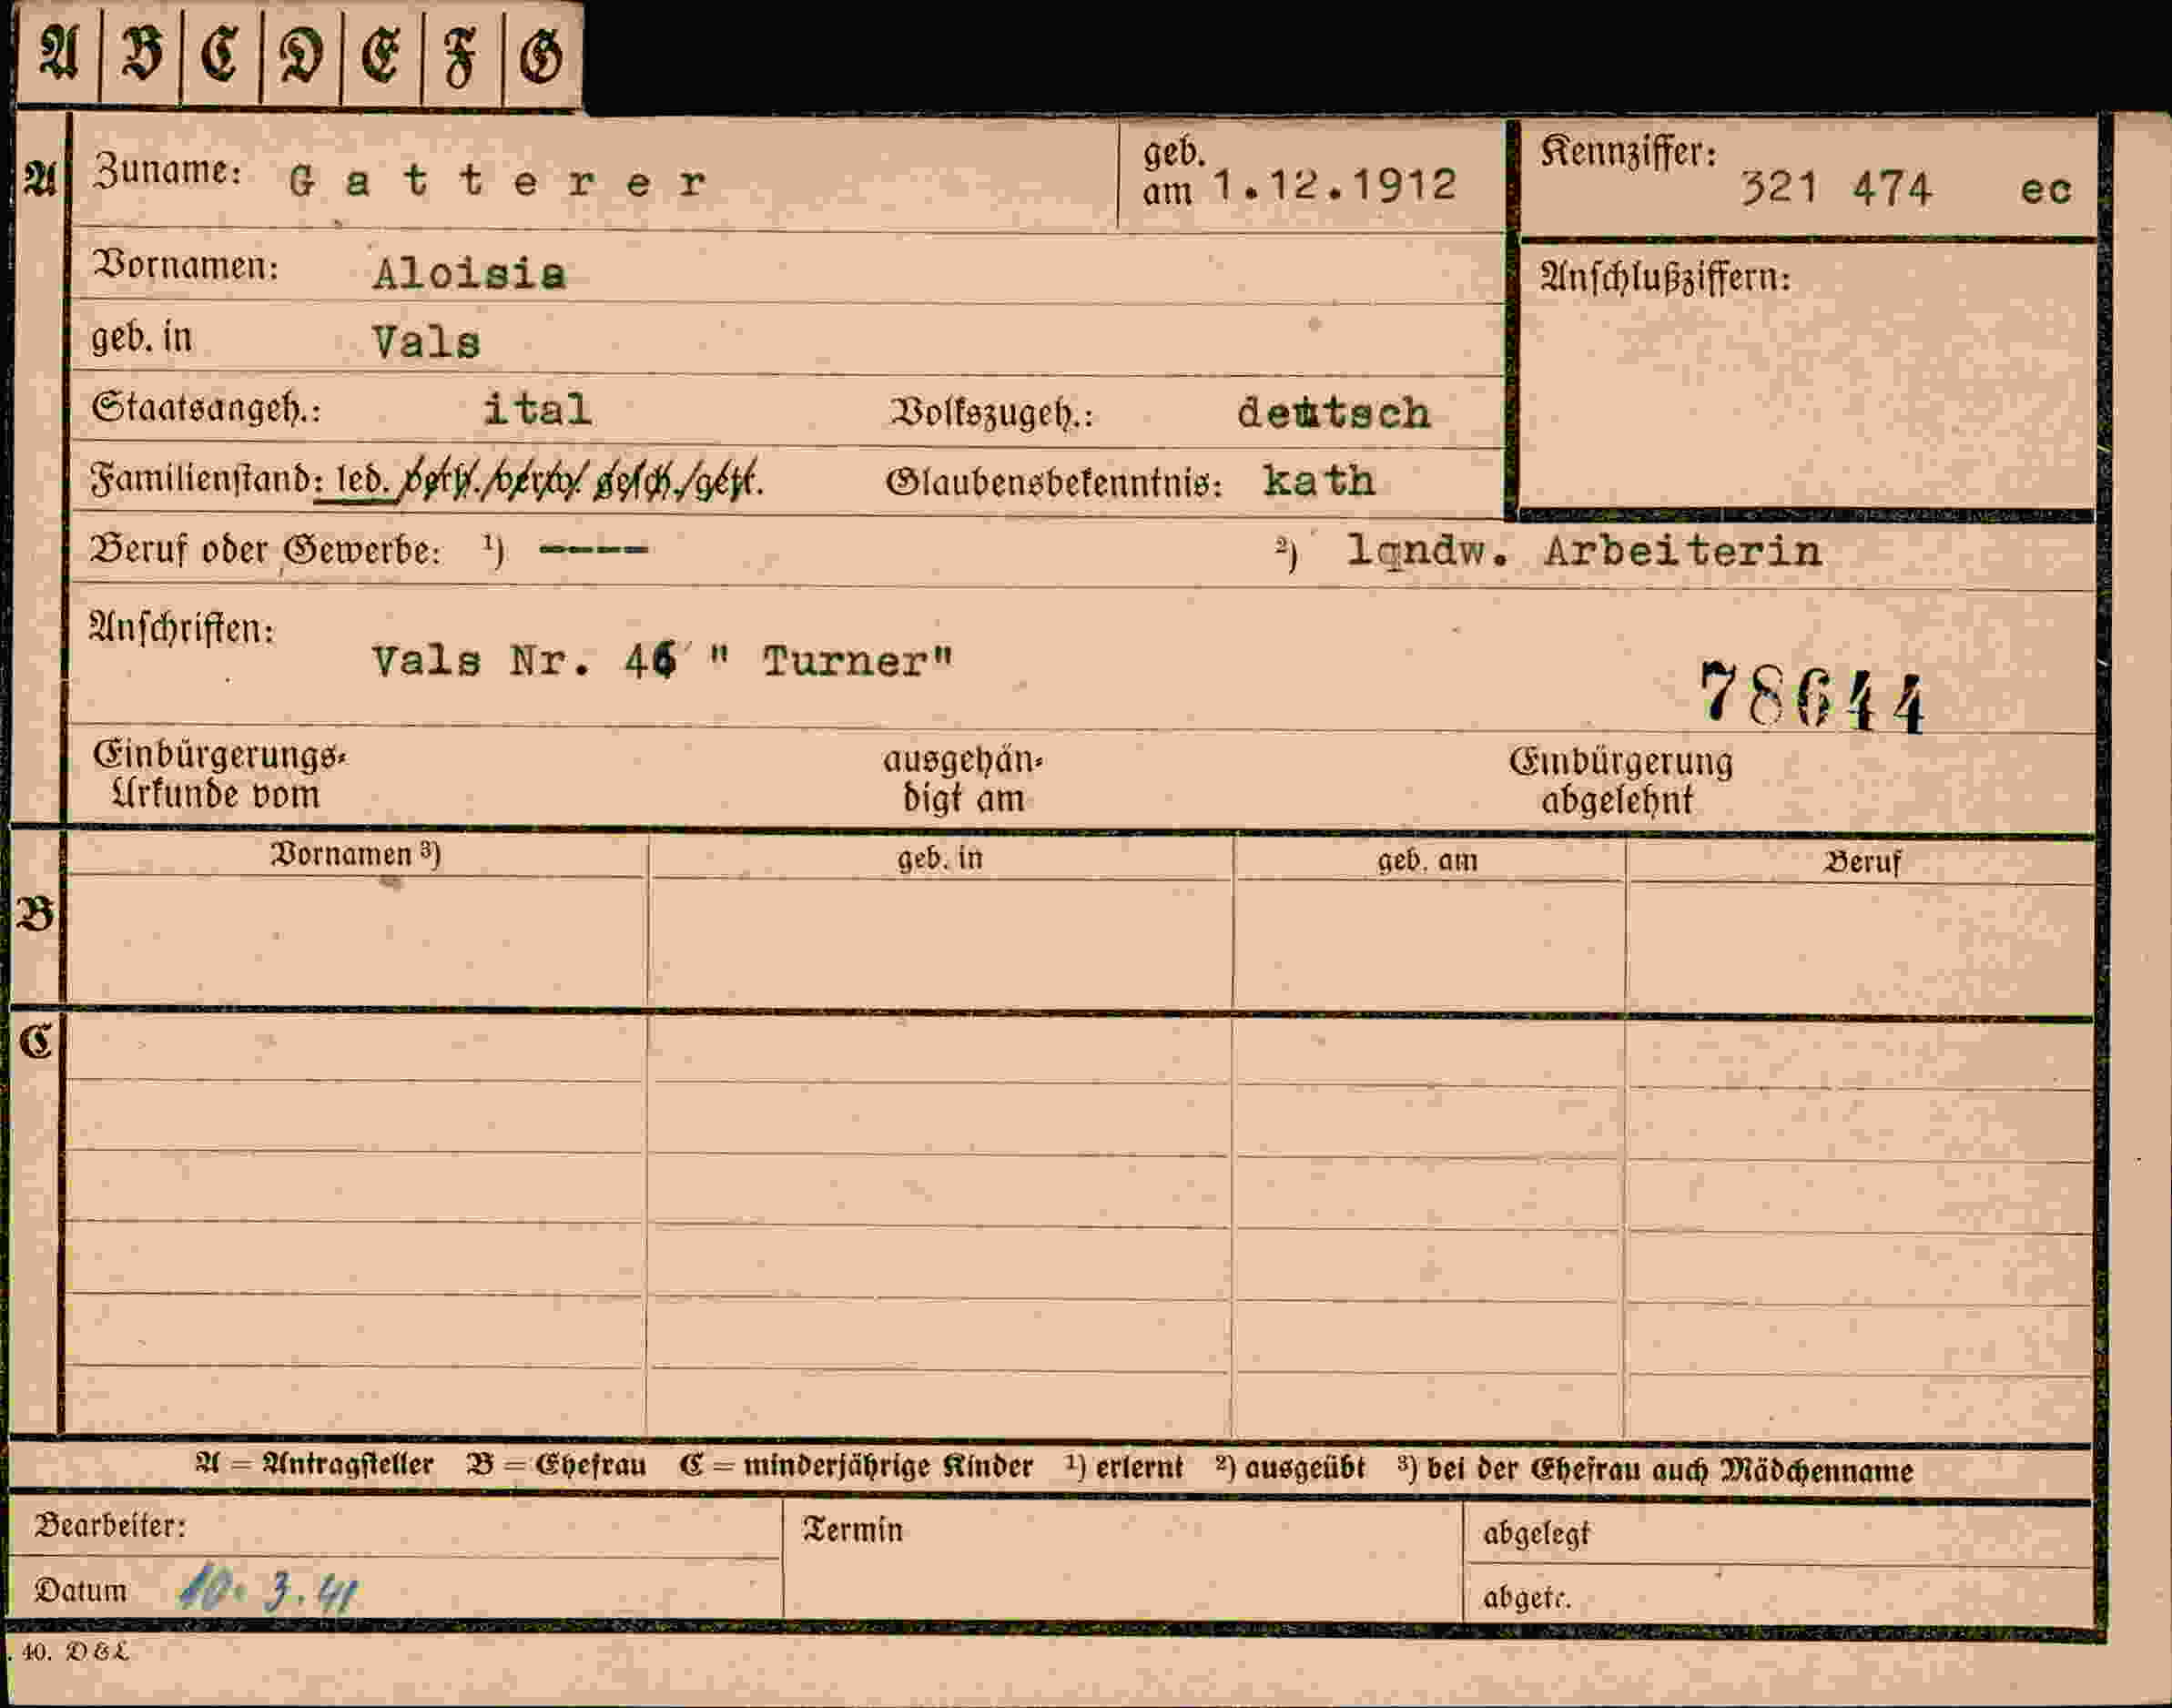 A B C D E F G
A Zuname: Gatterer geb. am 1.12.1912 Kennziffer: 321 474 ec
Vornamen: Aloisia Anschlußziffern:
geb. in Vals
Staatsangeh.: ital Volkszugeh.: deutsch
Familienstand: led. /verh./verw./ gesch./getr. Glaubensbekenntnis: kath
Beruf oder Gewerbe: ¹) ----- ²) landw. Arbeiterin
Anschriften:
Vals Nr. 46 " Turner"
78644
Einbürgerungs- ausgehän- Einbürgerung
Urkunde vom digt am abgelehnt
Vornamen ³) geb. in geb. am Beruf
B
C
A = Antragsteller B = Ehefrau C = minderjährige Kinder ¹) erlernt ²) ausgeübt ³) bei der Ehefrau auch Mädchenname
Bearbeiter: Termin abgelegt
Datum 10. 3. 41 abgetr.
. 40. D&L